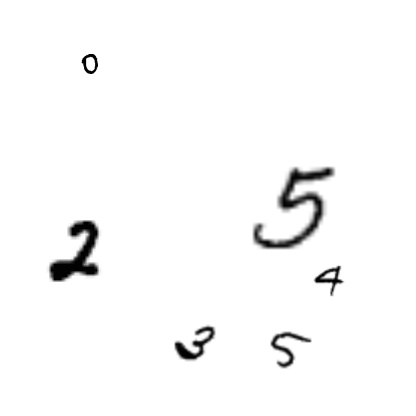 0
5
2
4
3 5